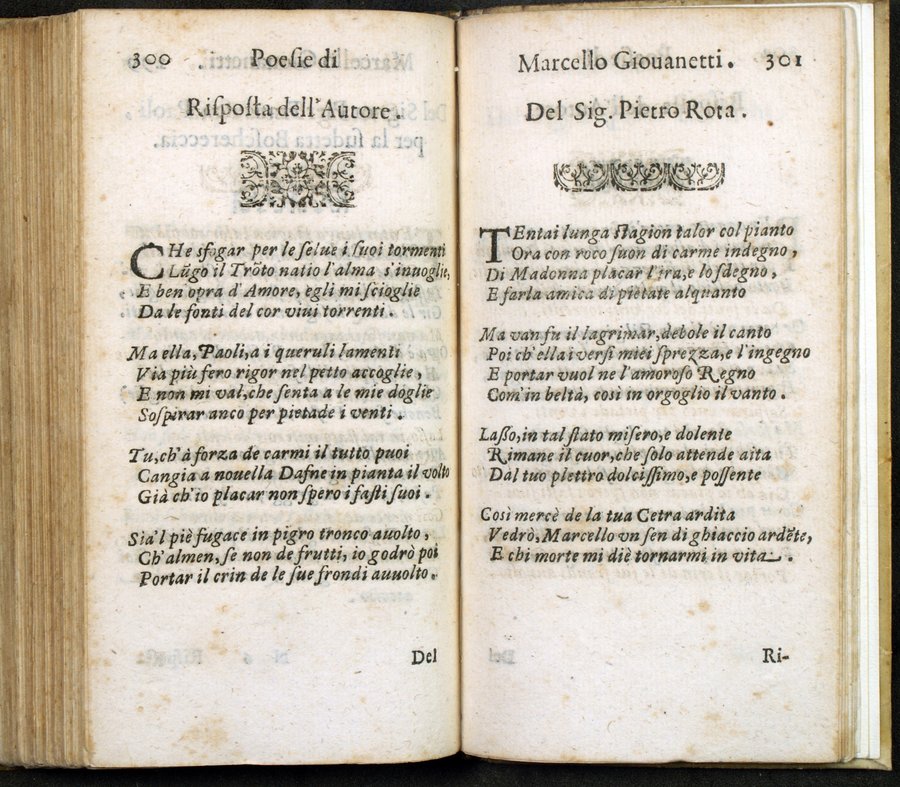 300 Poeſie di
Riſpoſta dell'Autore.
CHe sfogar per le ſelue i ſuoi tormenti
Lũgo il Trõto natio l'alma s'inuoglie,
E ben opra d'Amore, egli mi ſcioglie
Da le fonti del cor viui torrenti.
Ma ella, Paoli, a i queruli lamenti
Via più fero rigor nel petto accoglie,
E non mi val, che ſenta a le mie doglie
Soſpirar anco per pietade i venti.
Tu, ch'à forza de carmi il tutto puoi
Cangia a nouella Dafne in pianta il volto
Già ch'io placar non ſpero i faſti ſuoi.
Sia'l piè fugace in pigro tronco auolto,
Ch'almen, ſe non de frutti, io godrò poi
Portar il crin de le ſue frondi auuolto.
Del
Marcello Giouanetti. 301
Del Sig. Pietro Rota.
TEntai lunga ſtagion talor col pianto
Ora con roco ſuon di carme indegno,
Di Madonna placar l'ira, e lo ſdegno,
E farla amica di pietate alquanto
Ma van fu il lagrimar, debole il canto
Poi ch'ella i verſi miei ſprezza, e l'ingegno
E portar vuol ne l'amoroſo Regno
Com'in beltà, così in orgoglio il vanto.
Laſſo, in tal ſtato miſero, e dolente
Rimane il cuor, che ſolo attende aita
Dal tuo plettro dolciſſimo, e poſſente
Così mercè de la tua Cetra ardita
Vedrò, Marcello vn ſen di ghiaccio ardẽte,
E chi morte mi diè tornarmi in vita.
Ri-